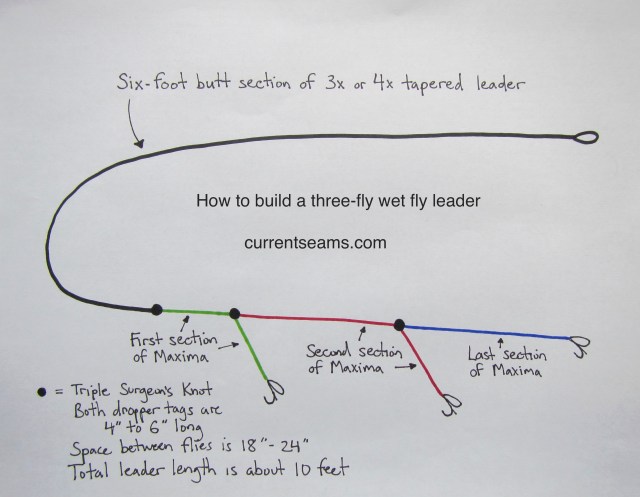 Six-foot butt section of 3x or 4x tapered leader
How to build a three-fly wet fly leader
currentseams.com
First section
of Maxima
Second section
of Maxima
Last section
of Maxima
= Triple Surgeon's Knot
Both dropper tags are
4" to 6" long
Space between flies is 18"-24"
Total leader length is about 10 feet